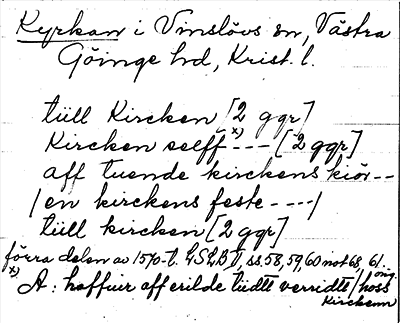 Kyrkan i Vinslövs sn, Västra
Göinge hd, Krist. l.
tiill Kircken [2 ggr]
Kircken selff x) --- [2 ggr]
aff tuende kirckens kiör --
/en kirckens feste ----/
tüll kircken [2 ggr]
förra delen av 1570-t. LSLB V, ss. 58, 59, 60 not 68, 61.
x) A: haffuir aff erilde tiidtt verridtt/hoss
Kirckenn